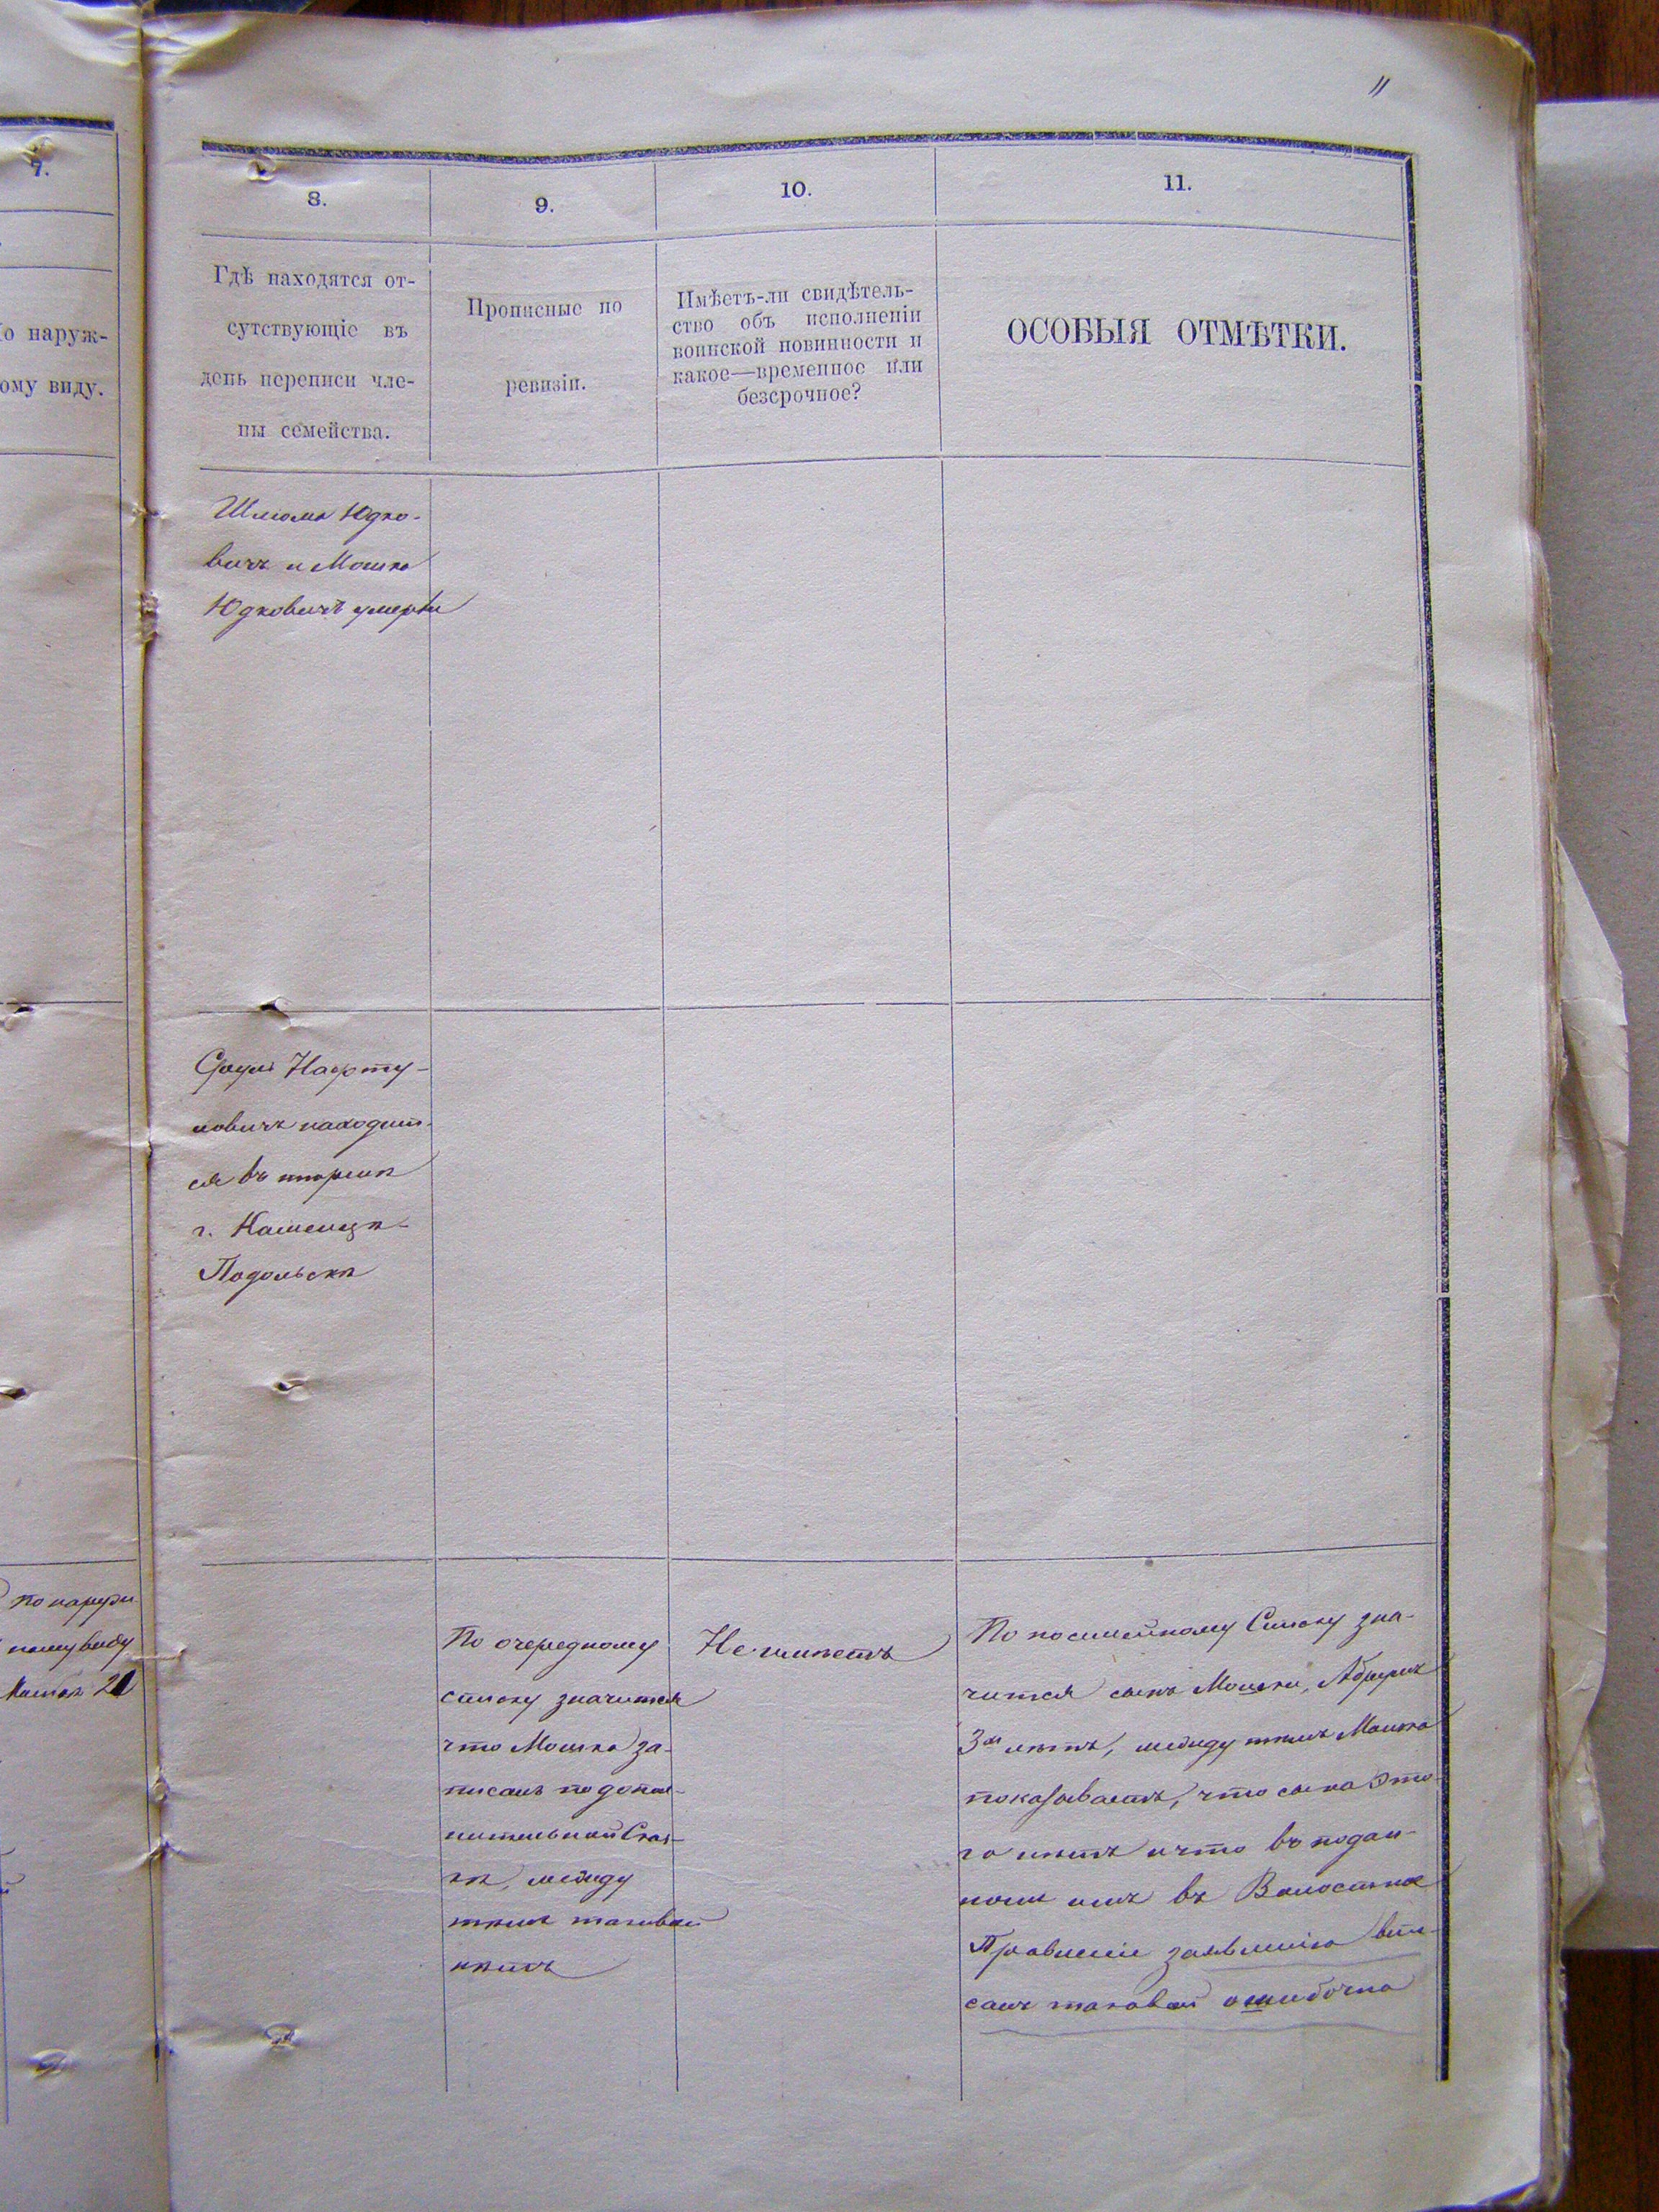 11
7.
о наруж-
ому виду.
8.
9.
10.
11.
Гдѣ находятся от-
сутствующіе въ
день переписи чле-
ны семейства.
Прописные по
ревизіи.
Имѣетъ-ли свидѣтель-
ство объ исполненіи
воинской повинности и
какое—временное или
безсрочное?
ОСОБЫЯ ОТМѢТКИ.
Шлома Юдко-
вичъ и Мошко
Юдковичъ умерли
Сруль Нафту-
ловичъ находит-
ся въ тюрьмѣ
г. Каменца-
Подольска
По наруж-
ному виду
21
По очередному
списку значится
что Мошко за-
писанъ по допол-
нительной Сказ-
кѣ, между
тѣмъ таковой
нѣтъ
Не имѣетъ
По посемейному Списку зна-
чится сынъ Мошки,
3хъ лѣтъ, между тѣмъ Мошко
показываетъ, что сына это-
го нѣтъ и что въ подан-
номъ имъ въ Волостное
Правленіе заявленіи впи-
санъ таковой ошибочно